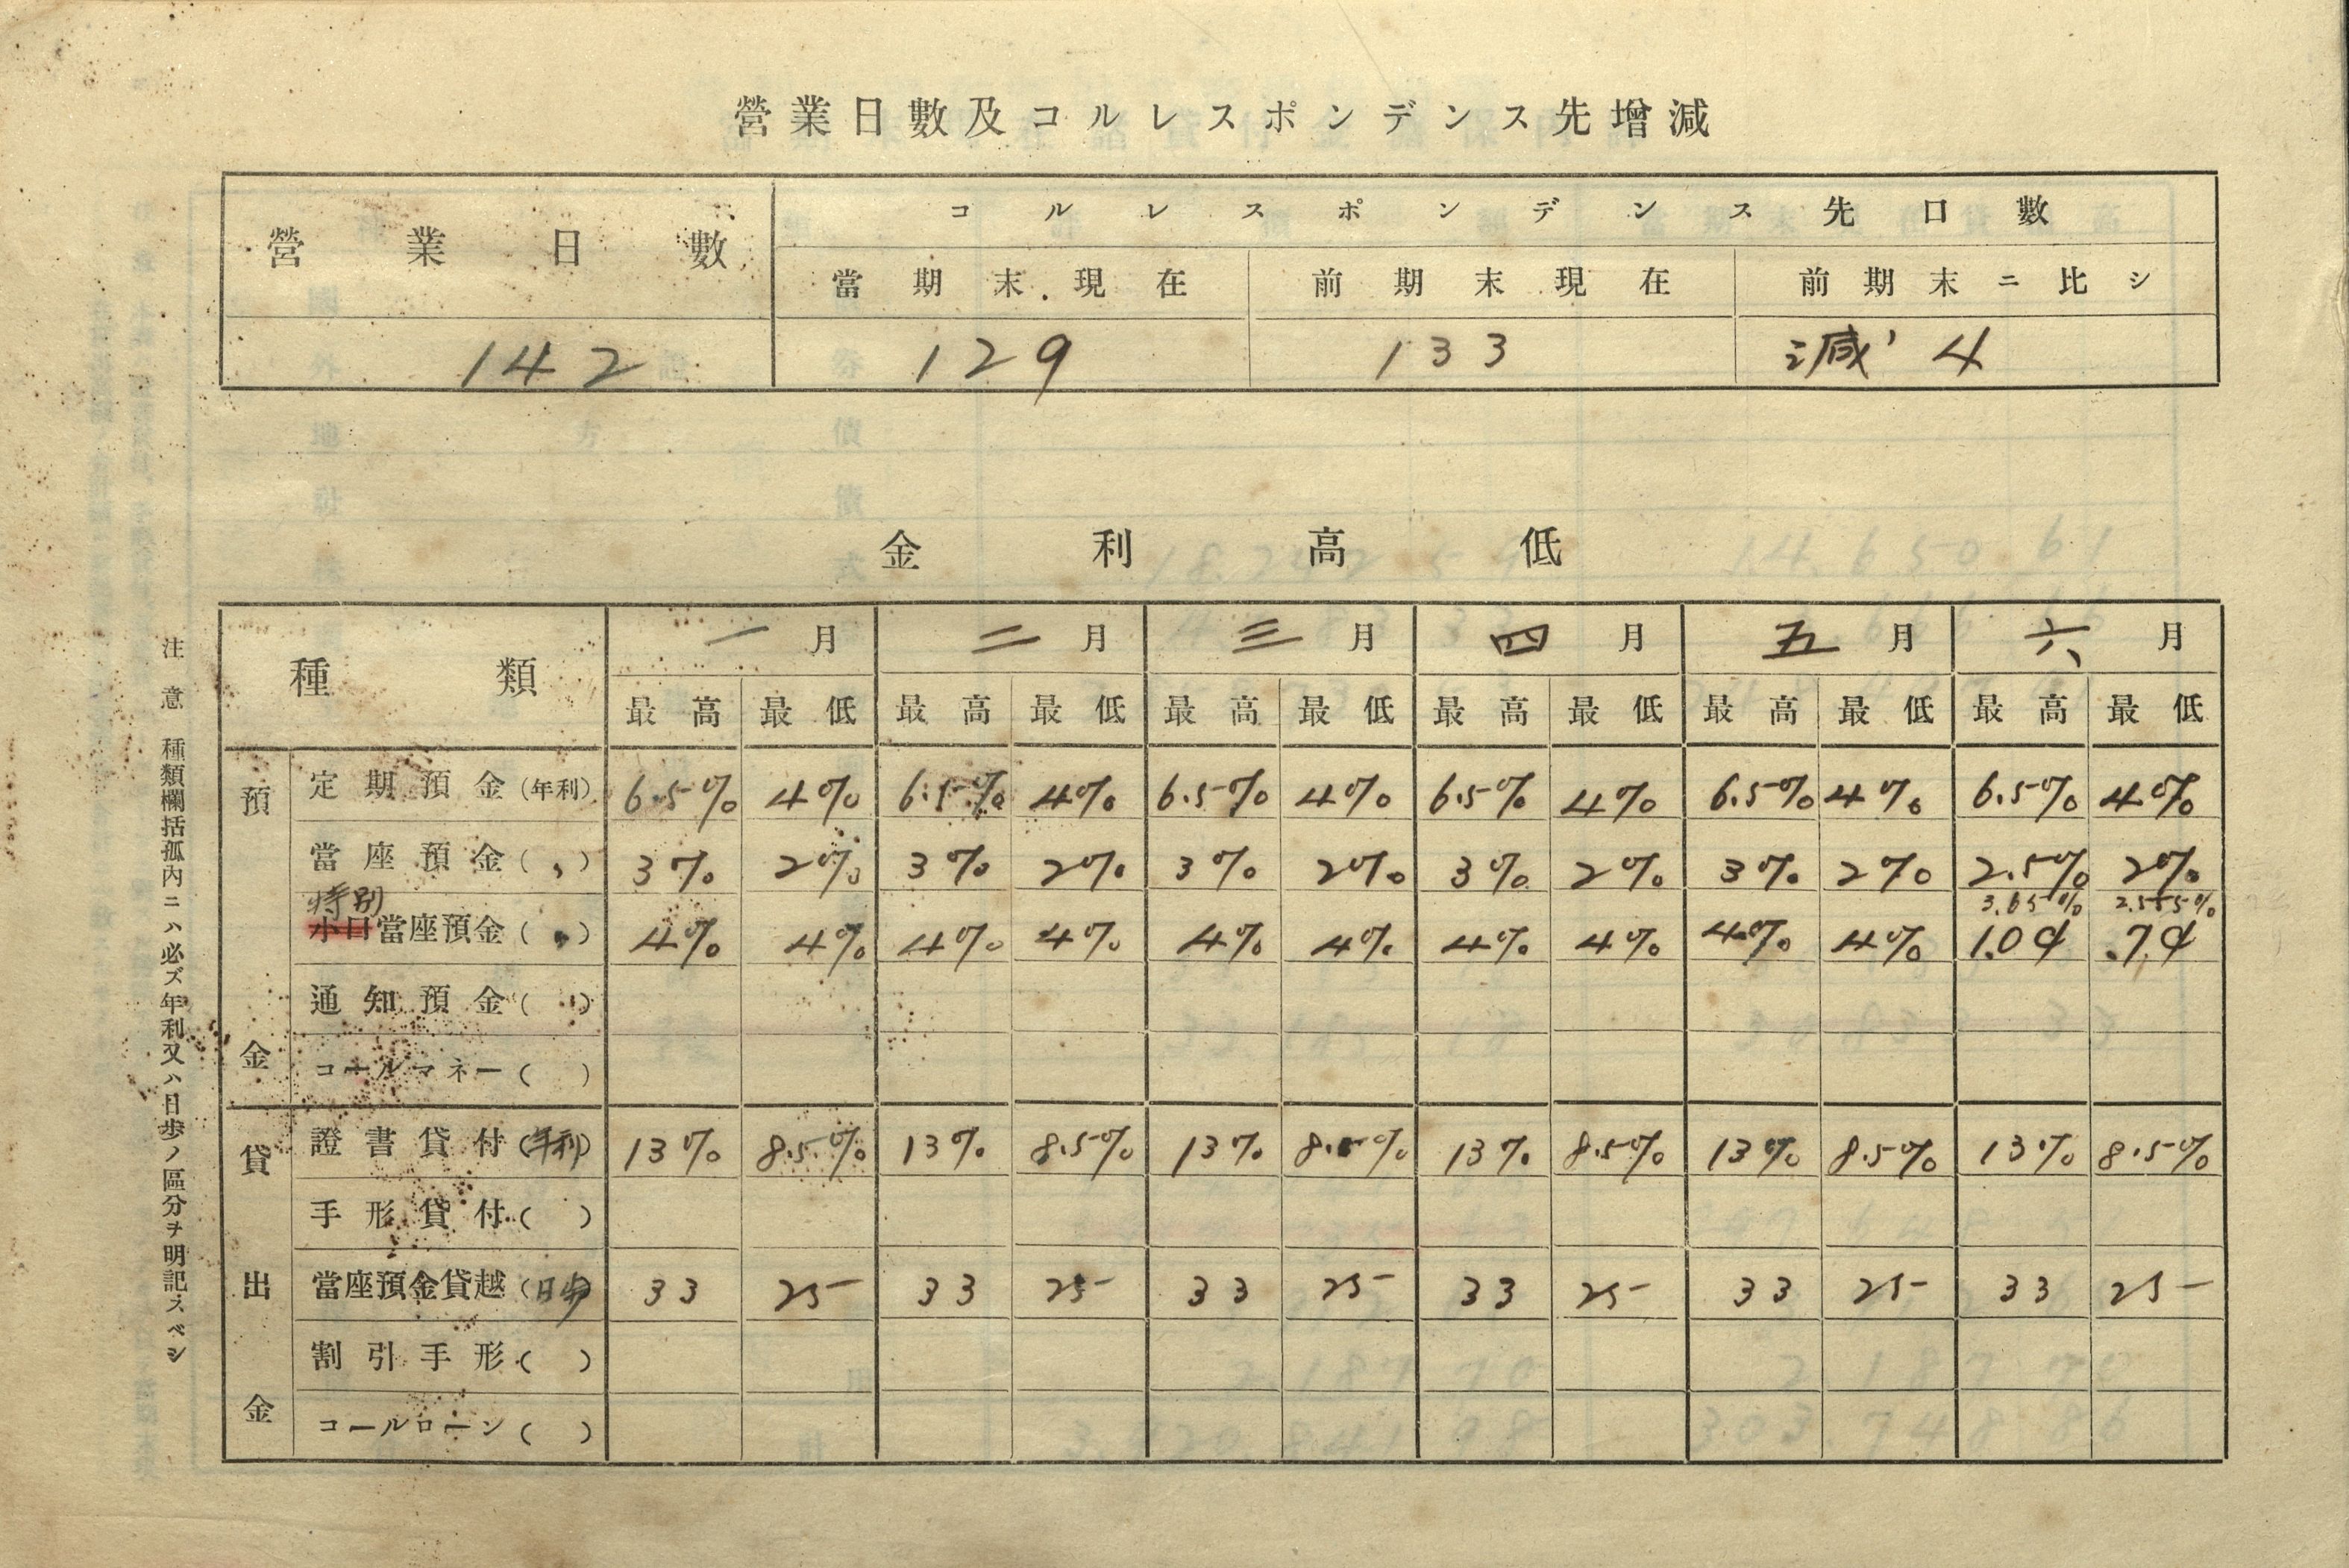 營業日數及コルレスポンデンス先增減
營業日數 コルレスポンデンス先口數
當期末現在 前期末現在 前期末ニ比シ
142 129 133 減 4
金利高低
種類 一月 二月 三月 四月 五月 六月
最高 最低 最高 最低 最高 最低 最高 最低 最高 最低 最高 最低
預金
定期預金(年利) 6.5% 4% 6.5% 4% 6.5% 4% 6.5% 4% 6.5% 4% 6.5% 4%
當座預金(〃) 3% 2% 3% 2% 3% 2% 3% 2% 3% 2% 2.5% 2%
特別 3.65% 2.555%
小口當座預金(〃) 4% 4% 4% 4% 4% 4% 4% 4% 4% 4% 1.0¢ .7¢
通知預金(〃)
コールマネー( )
貸出金
證書貸付(年利) 13% 8.5% 13% 8.5% 13% 8.5% 13% 8.5% 13% 8.5% 13% 8.5%
手形貸付( )
當座預金貸越(日歩) 33 25 33 25 33 25 33 25 33 25 33 25
割引手形( )
コールローン( )
注意 種類欄括孤內ニハ必ズ年利又ハ日歩ノ區分ヲ明記スベシ